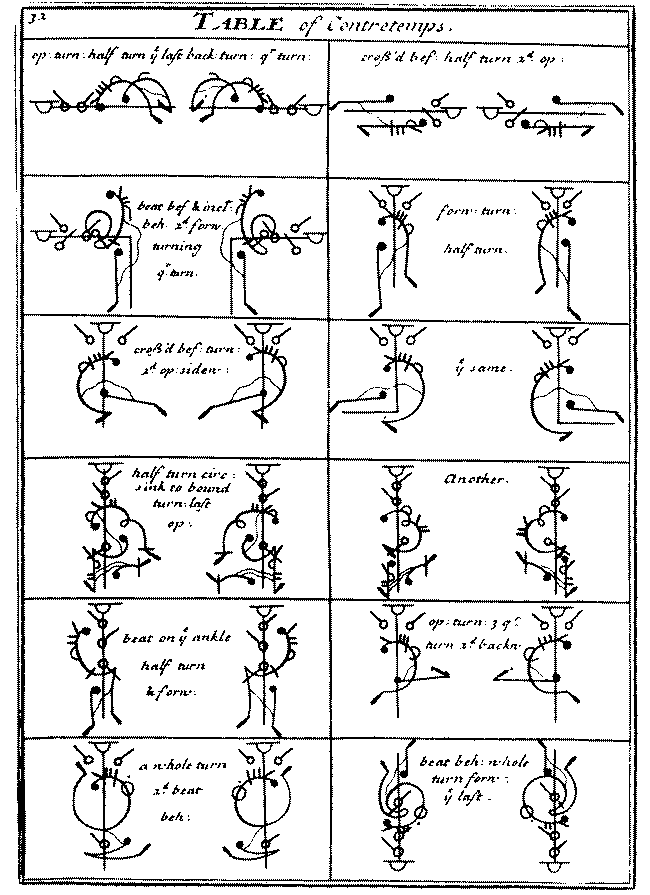 32
TABLE of Contretemps.
op: turn: half turn ÿ last back turn: qr turn:
cross'd bef: half turn 2d op:
beat bef & incl:
beh: 2d forw:
turning
qr turn.
forw: turn:
half turn.
cross'd bef: turn:
2d op: sidew:
ÿ same.
half turn circ:
sink to bound
turn: last
op:
Another.
beat on ÿ ankle
half turn
& forw:
op: turn: 3 qrs
turn 2d backw:
a whole turn
2d beat
beh:
beat beh: whole
turn forw:
ÿ last.